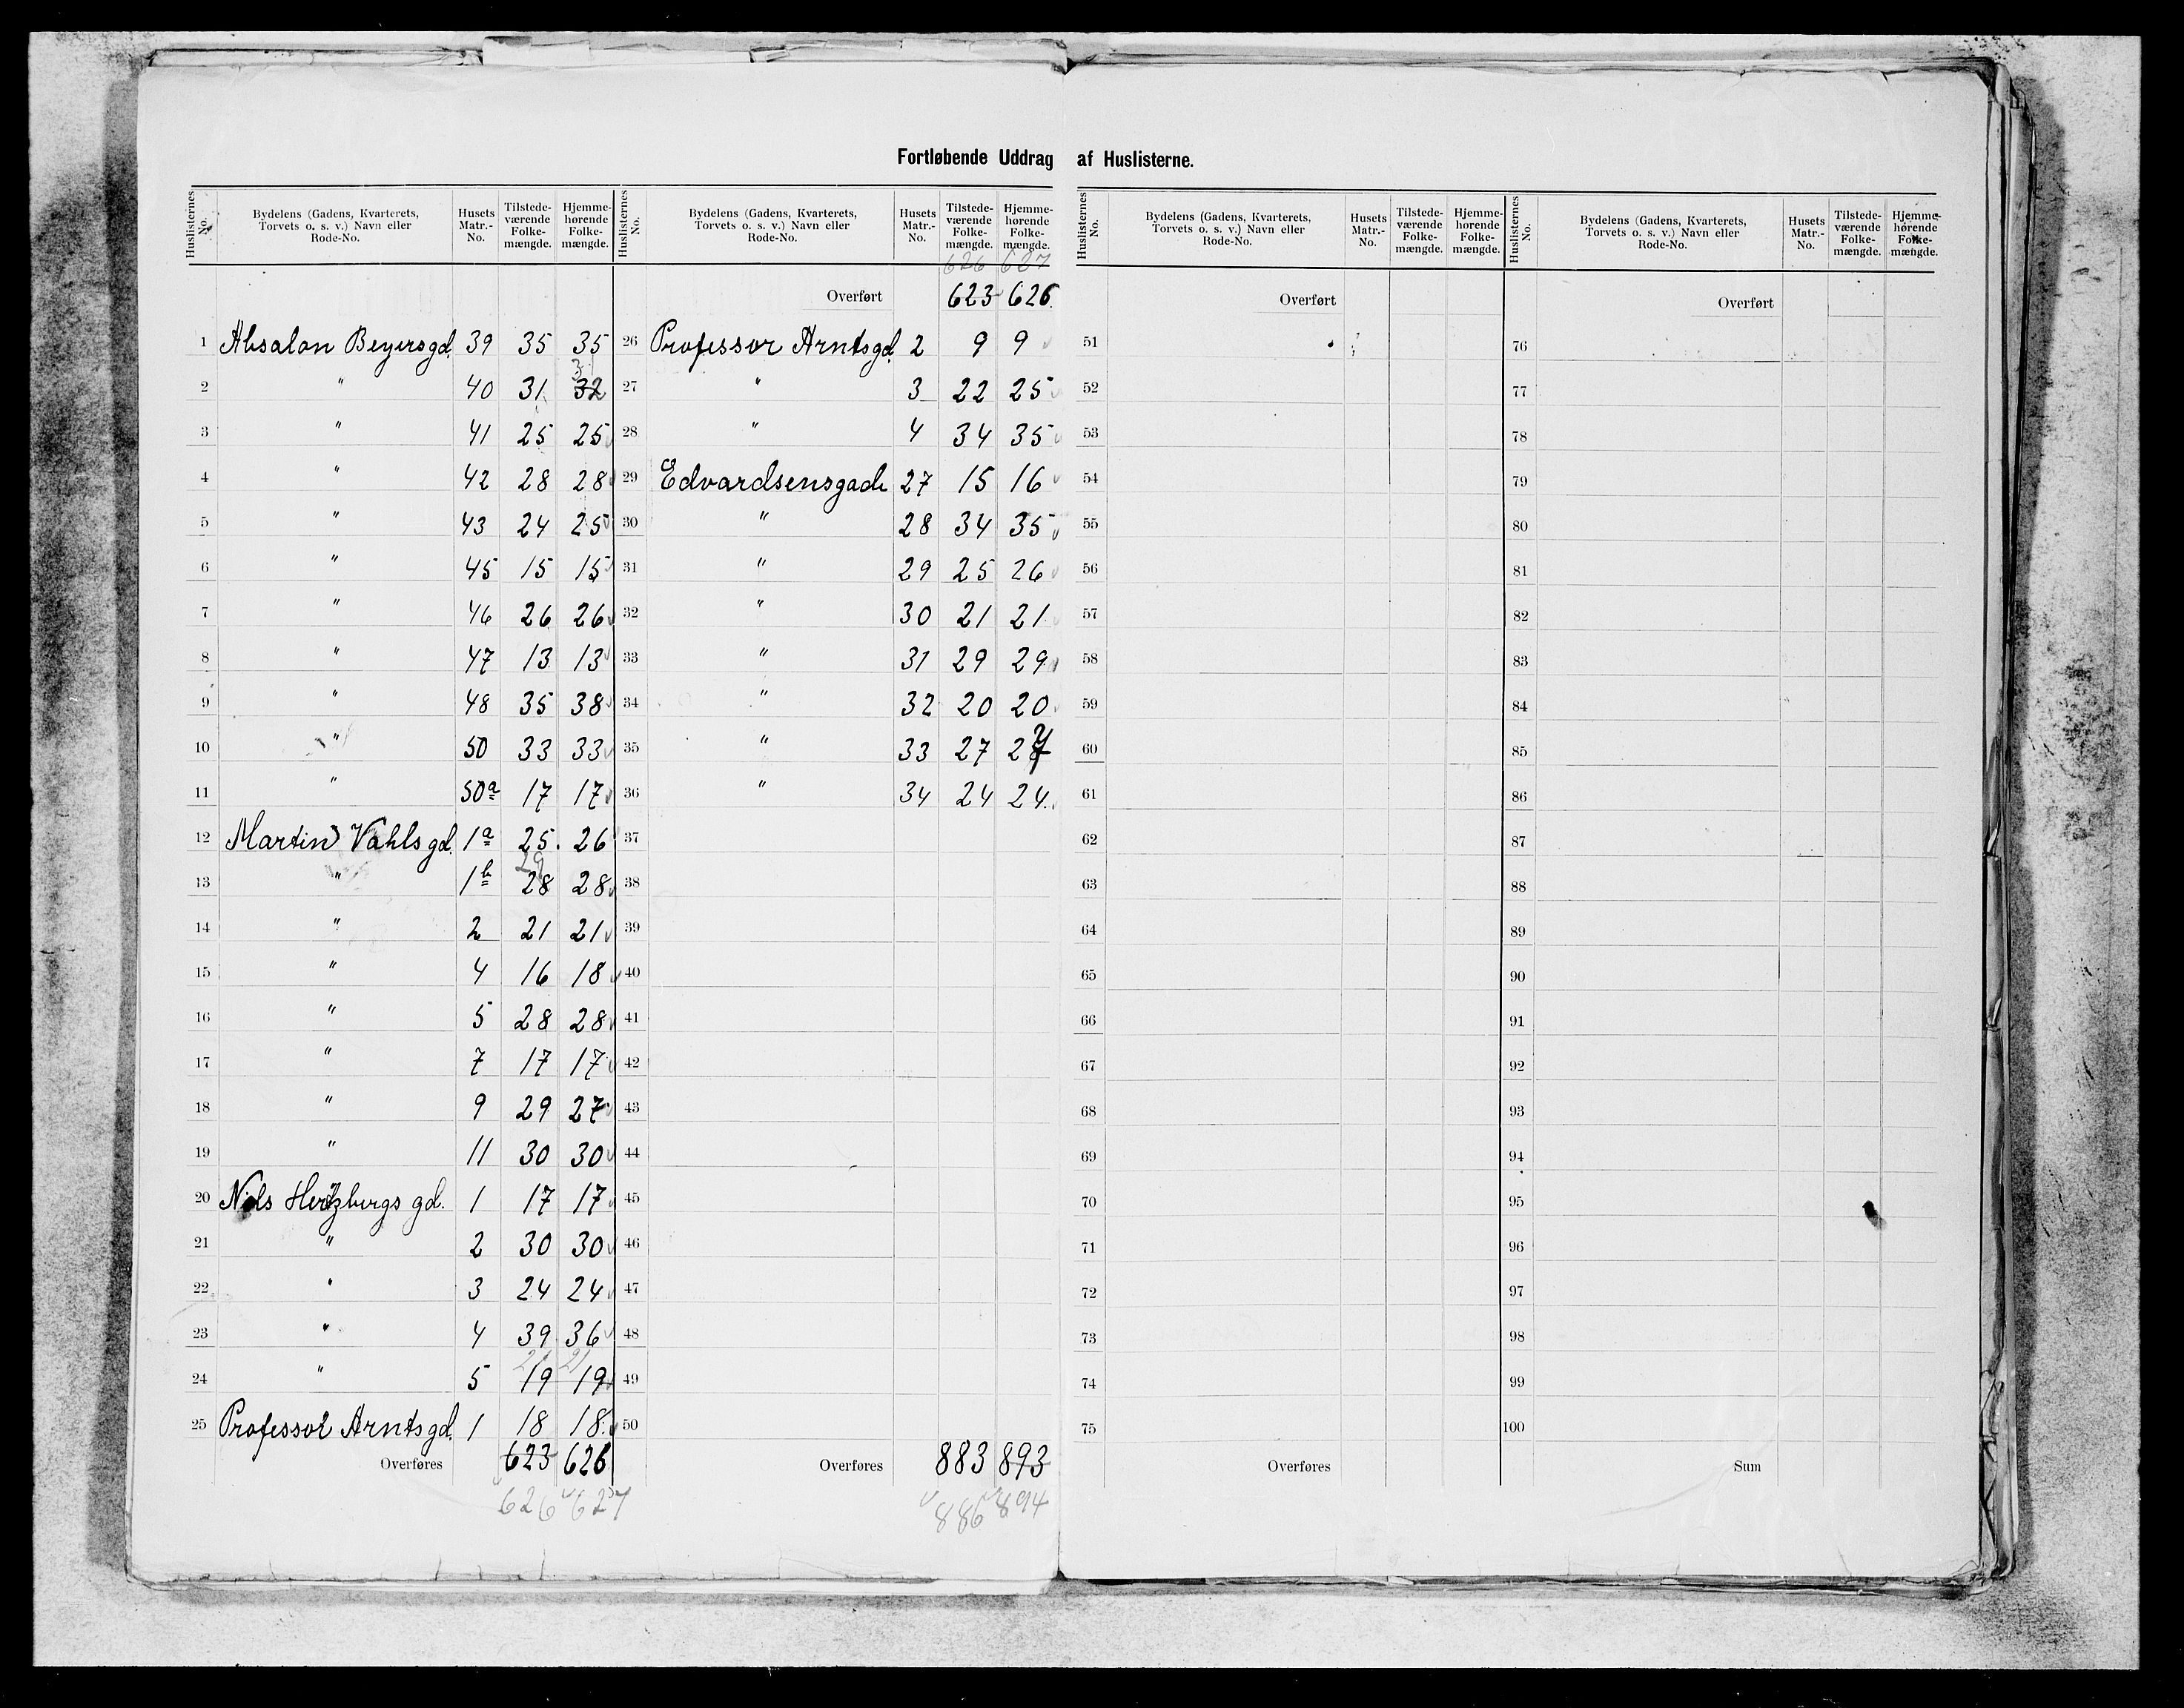 Fortløbende Uddrag af Huslisterne.
Huslisternes No. Bydelens (Gadens, Kvarterets, Torvets o. s. v.) Navn eller Rode-No. Husets Matr.-No. Tilstede-værende Folke-mængde. Hjemme-hørende Folke-mængde.
1 Absalon Beyersgd. 39 35 35
2 " 40 31 32 31
3 " 41 25 25
4 " 42 28 28
5 " 43 24 25
6 " 45 15 15
7 " 46 26 26
8 " 47 13 13
9 " 48 35 38
10 " 50 33 33
11 " 50a 17 17
12 Martin Vahlsgd. 1a 25 26
13 " 1b 28 29 28
14 " 2 21 21
15 " 4 16 18
16 " 5 28 28
17 " 7 17 17
18 " 9 29 27
19 " 11 30 30
20 Nils Hertzbergs gd. 1 17 17
21 " 2 30 30
22 " 3 24 24
23 " 4 39 36
24 " 5 19 21 19 21
25 Professor Arntsgd. 1 18 18
Overføres 623 626
626 627
Huslisternes No. Bydelens (Gadens, Kvarterets, Torvets o. s. v.) Navn eller Rode-No. Husets Matr.-No. Tilstede-værende Folke-mængde. Hjemme-hørende Folke-mængde.
626 627
Overført 623 626
26 Professor Arntsgd. 2 9 9
27 " 3 22 25
28 " 4 34 35
29 Edvardsensgade 27 15 16
30 " 28 34 35
31 " 29 25 26
32 " 30 21 21
33 " 31 29 29
34 " 32 20 20
35 " 33 27 27
36 " 34 24 24
37
38
39
40
41
42
43
44
45
46
47
48
49
50
Overføres 883 893
886 894
Huslisternes No. Bydelens (Gadens, Kvarterets, Torvets o. s. v.) Navn eller Rode-No. Husets Matr.-No. Tilstede-værende Folke-mængde. Hjemme-hørende Folke-mængde.
Overført
51
52
53
54
55
56
57
58
59
60
61
62
63
64
65
66
67
68
69
70
71
72
73
74
75
Overføres
Huslisternes No. Bydelens (Gadens, Kvarterets, Torvets o. s. v.) Navn eller Rode-No. Husets Matr.-No. Tilstede-værende Folke-mængde. Hjemme-hørende Folke-mængde.
Overført
76
77
78
79
80
81
82
83
84
85
86
87
88
89
90
91
92
93
94
95
96
97
98
99
100
Sum